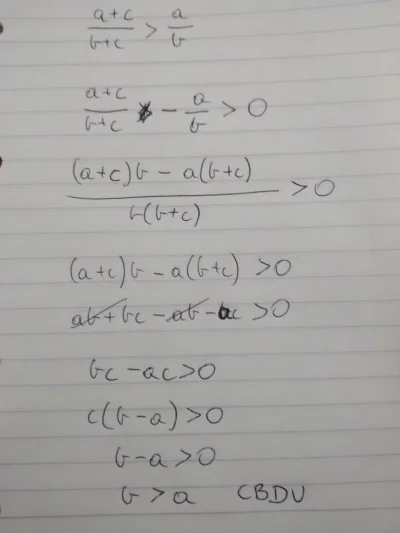 (a+c)/(b+c) > a/b
(a+c)/(b+c) - a/b > 0
((a+c)b - a(b+c))/(b(b+c)) > 0
(a+c)b - a(b+c) > 0
ab + bc - ab - ac > 0
bc - ac > 0
c(b-a) > 0
b-a > 0
b > a CBDU